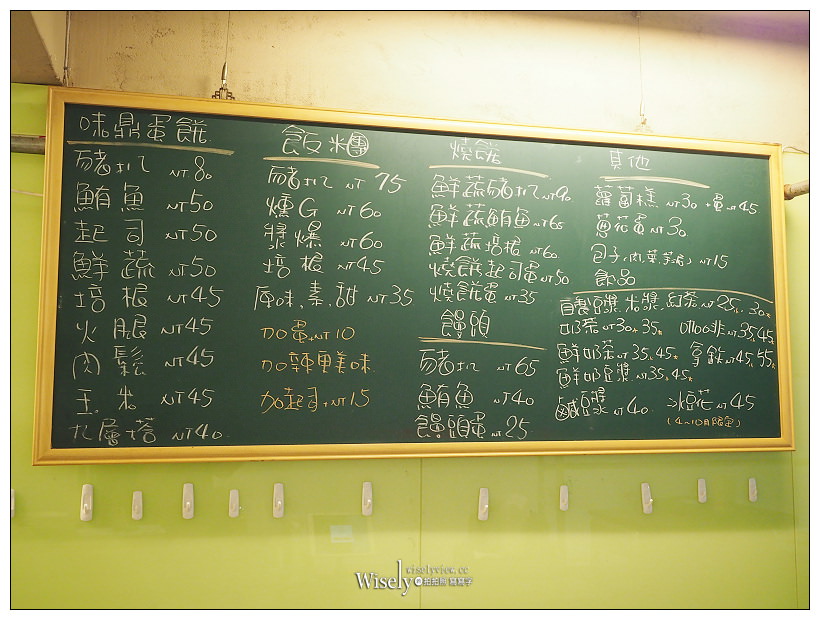 味鼎蛋餅
豬扒 NT 80
鮪魚 NT50
起司 NT50
鮮蔬 NT50
培根 NT45
火腿 NT45
肉鬆 NT45
玉米 NT45
九層塔 NT40
飯糰
豬扒 NT 75
燻G NT60
漿爆 NT60
培根 NT45
原味.素.甜 NT35
加蛋+NT10
加辣更美味
加起司+NT15
燒餅
鮮蔬豬扒NT90
鮮蔬鮪魚NT65
鮮蔬培根NT60
燒餅起司蛋NT50
燒餅蛋NT35
饅頭
豬扒 NT65
鮪魚 NT40
饅頭蛋 NT25
其他
蘿蔔糕 NT30 +蛋NT45
蔥花蛋 NT30
包子(肉.菜.芋泥) NT15
飲品
自製豆漿.米漿.紅茶 NT25.30大
奶茶 NT30.35大 咖啡NT35.45大
鮮奶茶NT35.45大 拿鐵NT45.55大
鮮奶豆漿NT35.45大
鹹豆漿NT40 冰豆花 NT45
(4~10月限定)
wiselyview.cc
Wisely拍拍照寫寫字